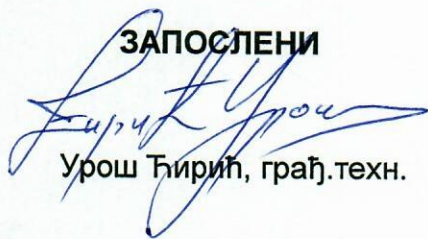 ЗАПОСЛЕНИ
Ћирић Урош
Урош Ћирић, грађ.техн.